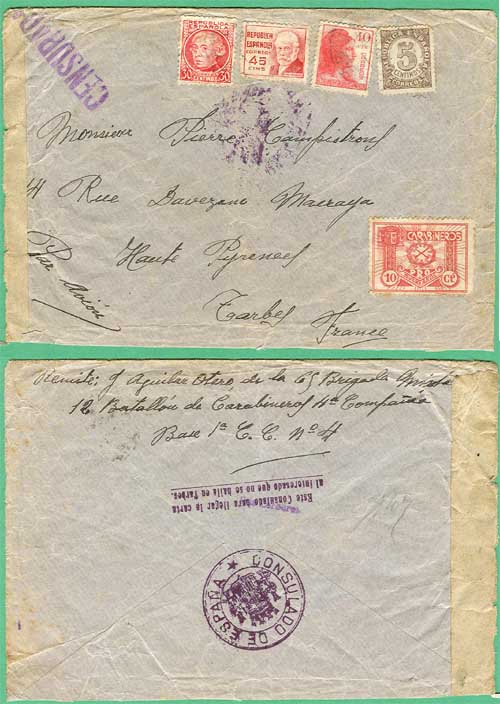 CENSURADO
REPÚBLICA ESPAÑOLA
30 CENTIMOS 30
REPUBLICA ESPAÑOLA
CORREOS
45
CTMS
40
CTS
REPUBLICA ESPAÑOLA
5
CENTIMOS
CORREOS
Monsieur Pierre Campistrous
14 Rue Davezano Macaya
Haute Pyrenees
Par Avion
Tarbes
France
CARABINEROS
10 CTs
Remite: J Aguilar Otero, de la 65 Brigada Mixta
12 Batallón de Carabineros 4ª Compañia
Base 1ª C. C. Nº 4
Este Consulado hara llegar la carta
al interesado que no se halla en Tarbes.
CONSULADO DE ESPAÑA